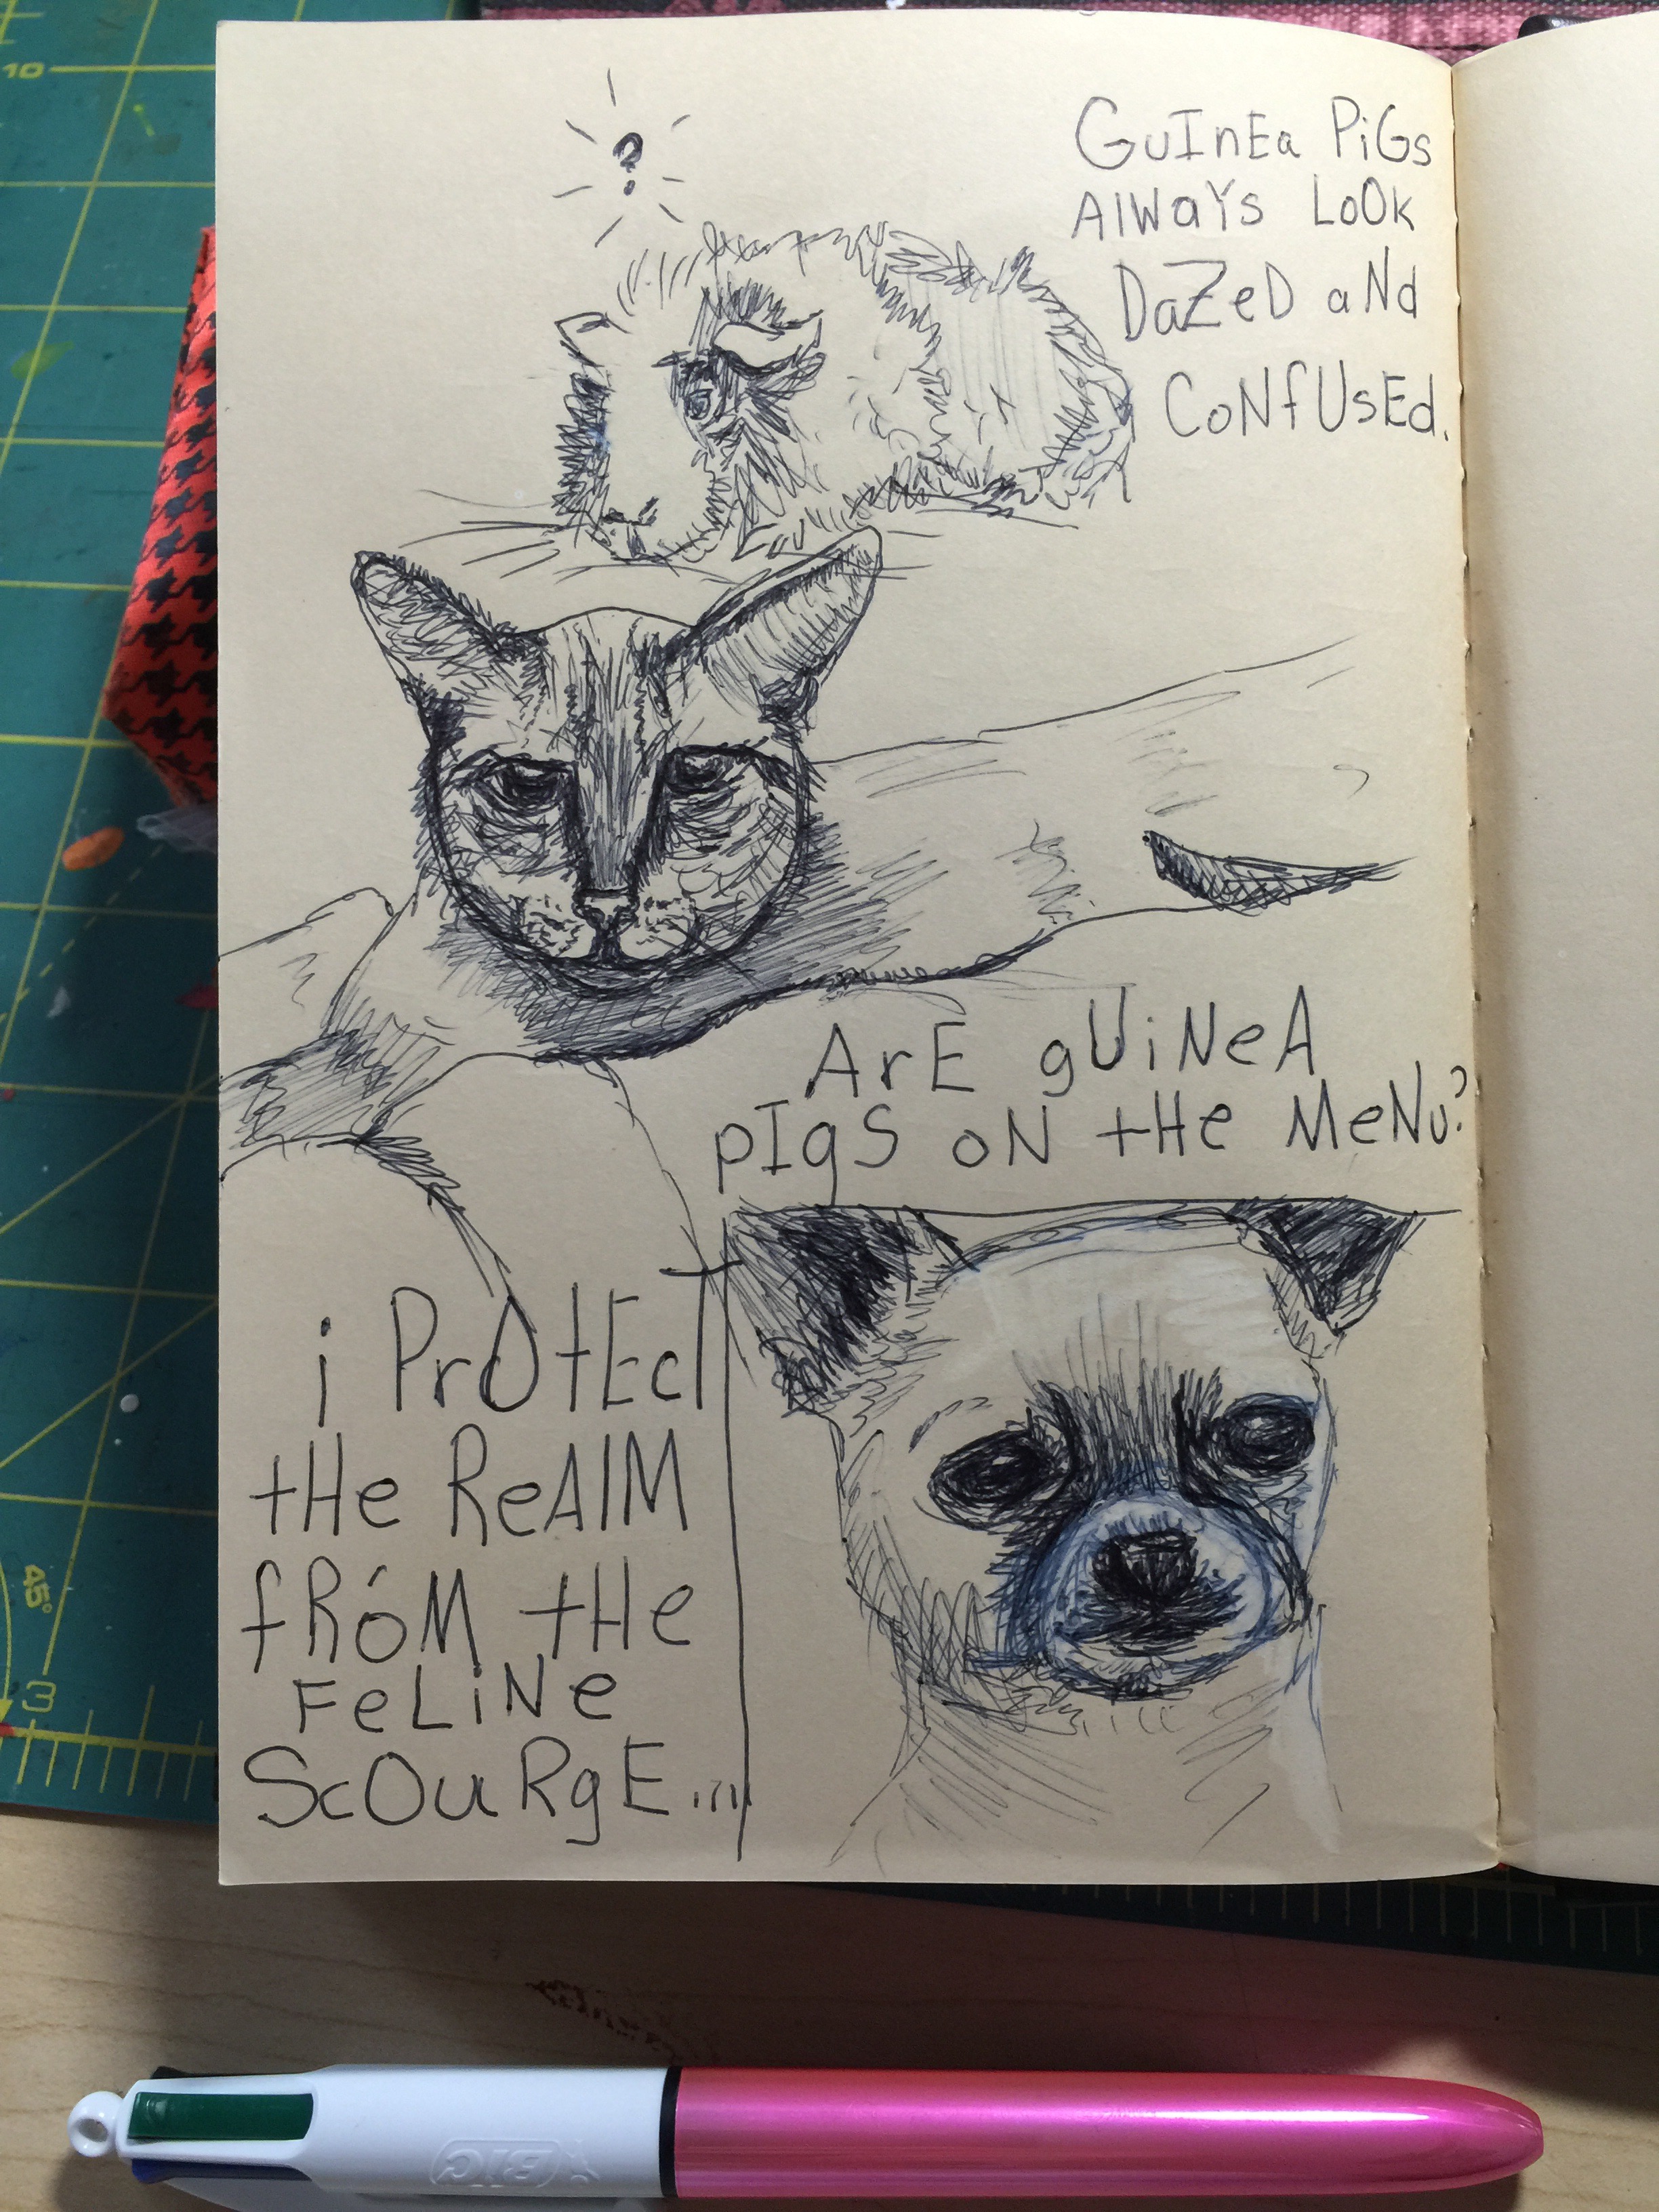 10
?
GuInEa PiGs
AlWaYs LoOk
DaZeD aNd
CoNfUsEd.
ArE gUiNeA
pIgS oN tHe MeNu?
i PrOtEcT
tHe ReAlM
fRóM tHe
FeLiNe
ScOuRgE....
45°
3
BIC